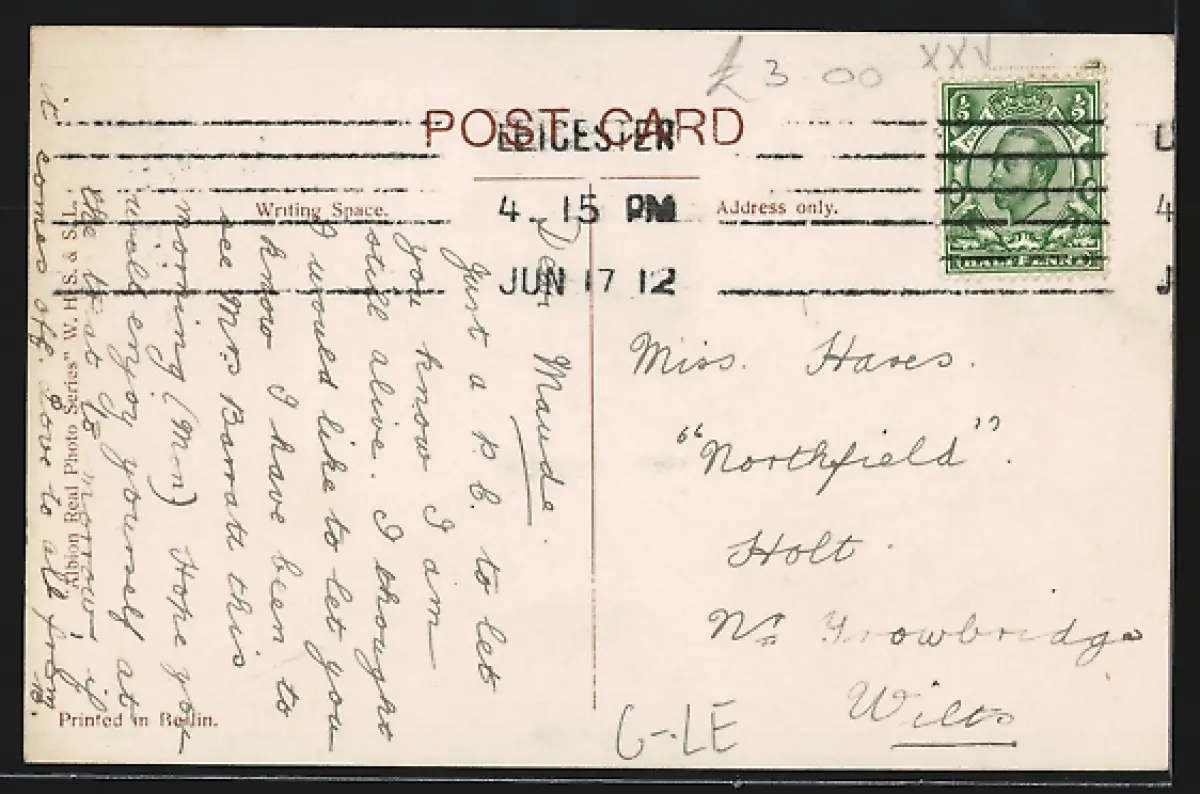 £3.00 XXV
POST CARD
LEICESTER
4. 15 PM
JUN 17 12
Writing Space.
Address only.
Dear Maude.
Just a p.c. to let
you know I am
still alive. I thought
I would like to let you
know I have been to
see Mrs Barratt this
morning (Mon) Hope you
will enjoy yourself at
the to morrow if
it comes off. Love to all from
Miss. Hares.
"Northfield".
Holt.
Nr Trowbridge
Wilts
G-LE
Albion Real Photo Series" W. H. S. & S. L.
Printed in Berlin.